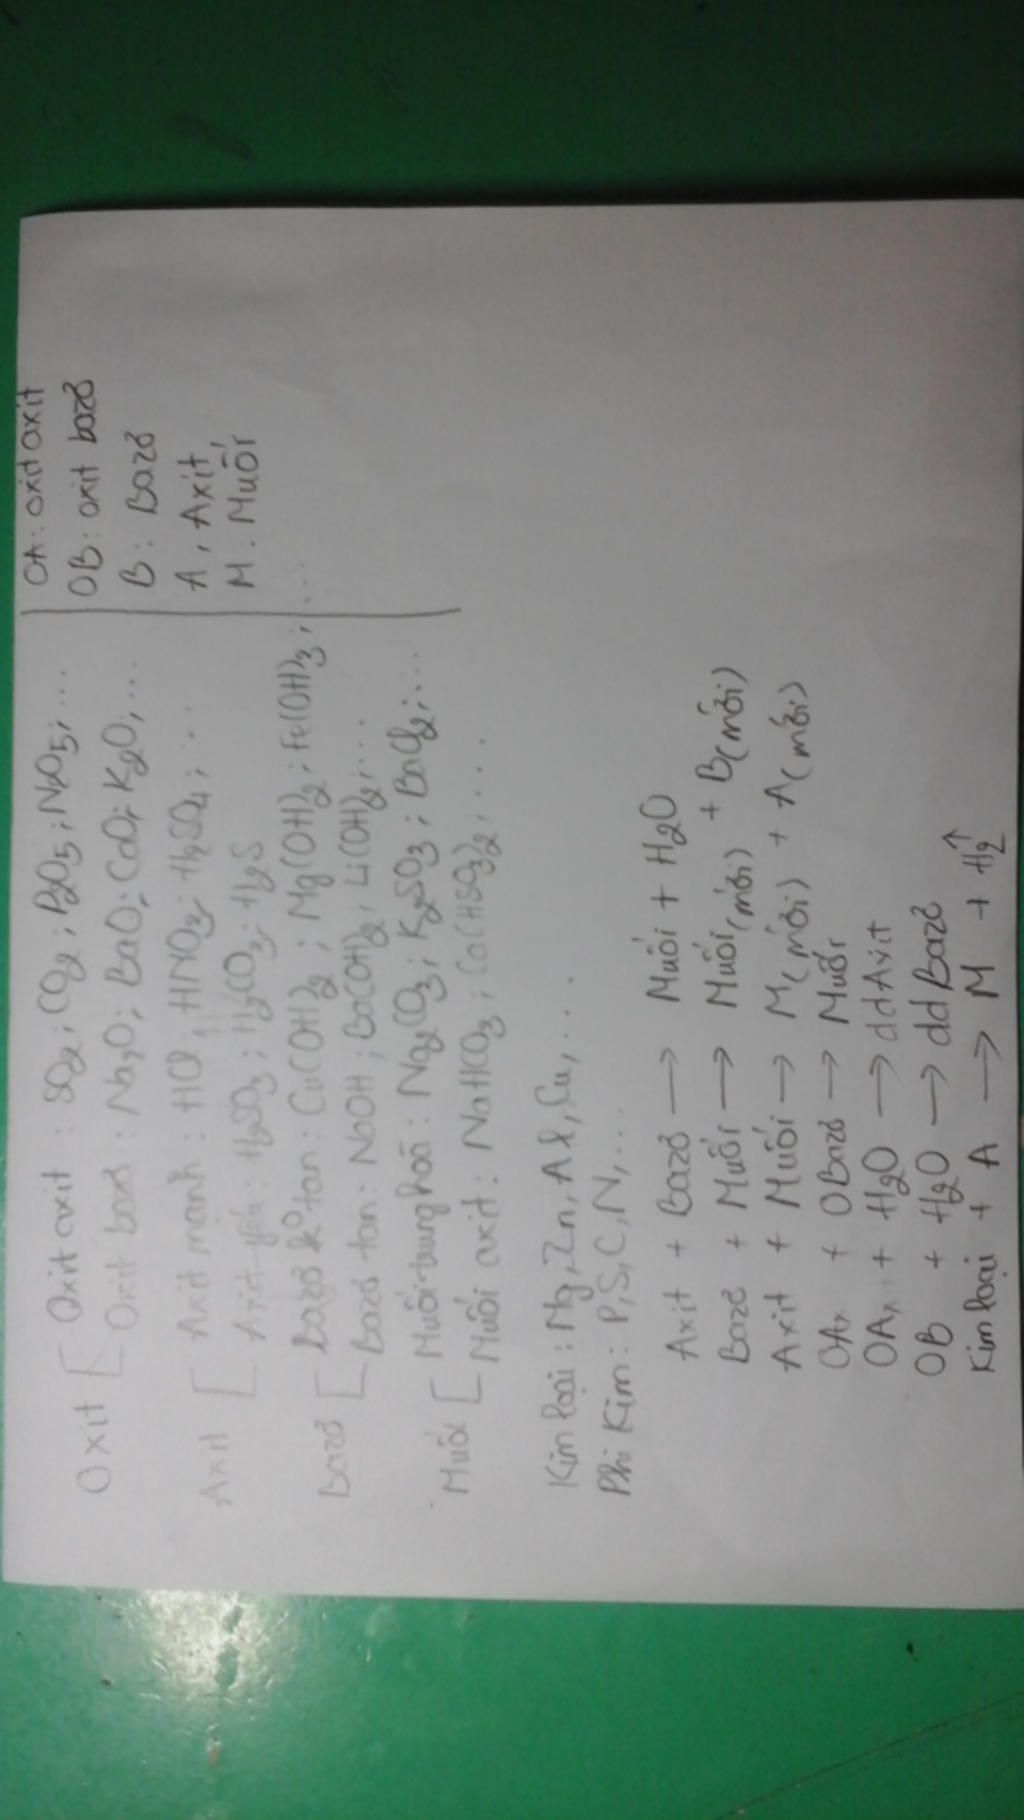 Oxit [ Oxit axit : SO2 ; CO2 ; P2O5 ; N2O5 ; ...
Oxit bazơ : Na2O ; BaO ; CaO ; K2O ; ...
Axit [ Axit mạnh : HCl ; HNO3 ; H2SO4 ; ...
Axit yếu : H2SO3 ; H2CO3 ; H2S
Bazơ [ Bazơ ko tan : Cu(OH)2 ; Mg(OH)2 ; Fe(OH)3 ; ...
Bazơ tan : NaOH ; Ba(OH)2 ; Li(OH)2 ; ...
Muối [ Muối trung hoà : Na2CO3 ; K2SO3 ; BaCl2 ; ...
Muối axit : NaHCO3 ; Ca(HSO3)2 ; ...
OA : oxit axit
OB : oxit bazơ
B : Bazơ
A , Axit
M . Muối
Kim loại : Mg, Zn, Al, Cu, ...
Phi Kim : P, S, C, N, ...
Axit + Bazơ → Muối + H2O
Bazơ + Muối → Muối (mới) + B (mới)
Axit + Muối → M (mới) + A (mới)
OAx + OBazơ → Muối
OAx + H2O → dd Axit
OB + H2O → dd Bazơ
Kim loại + A → M + H2↑